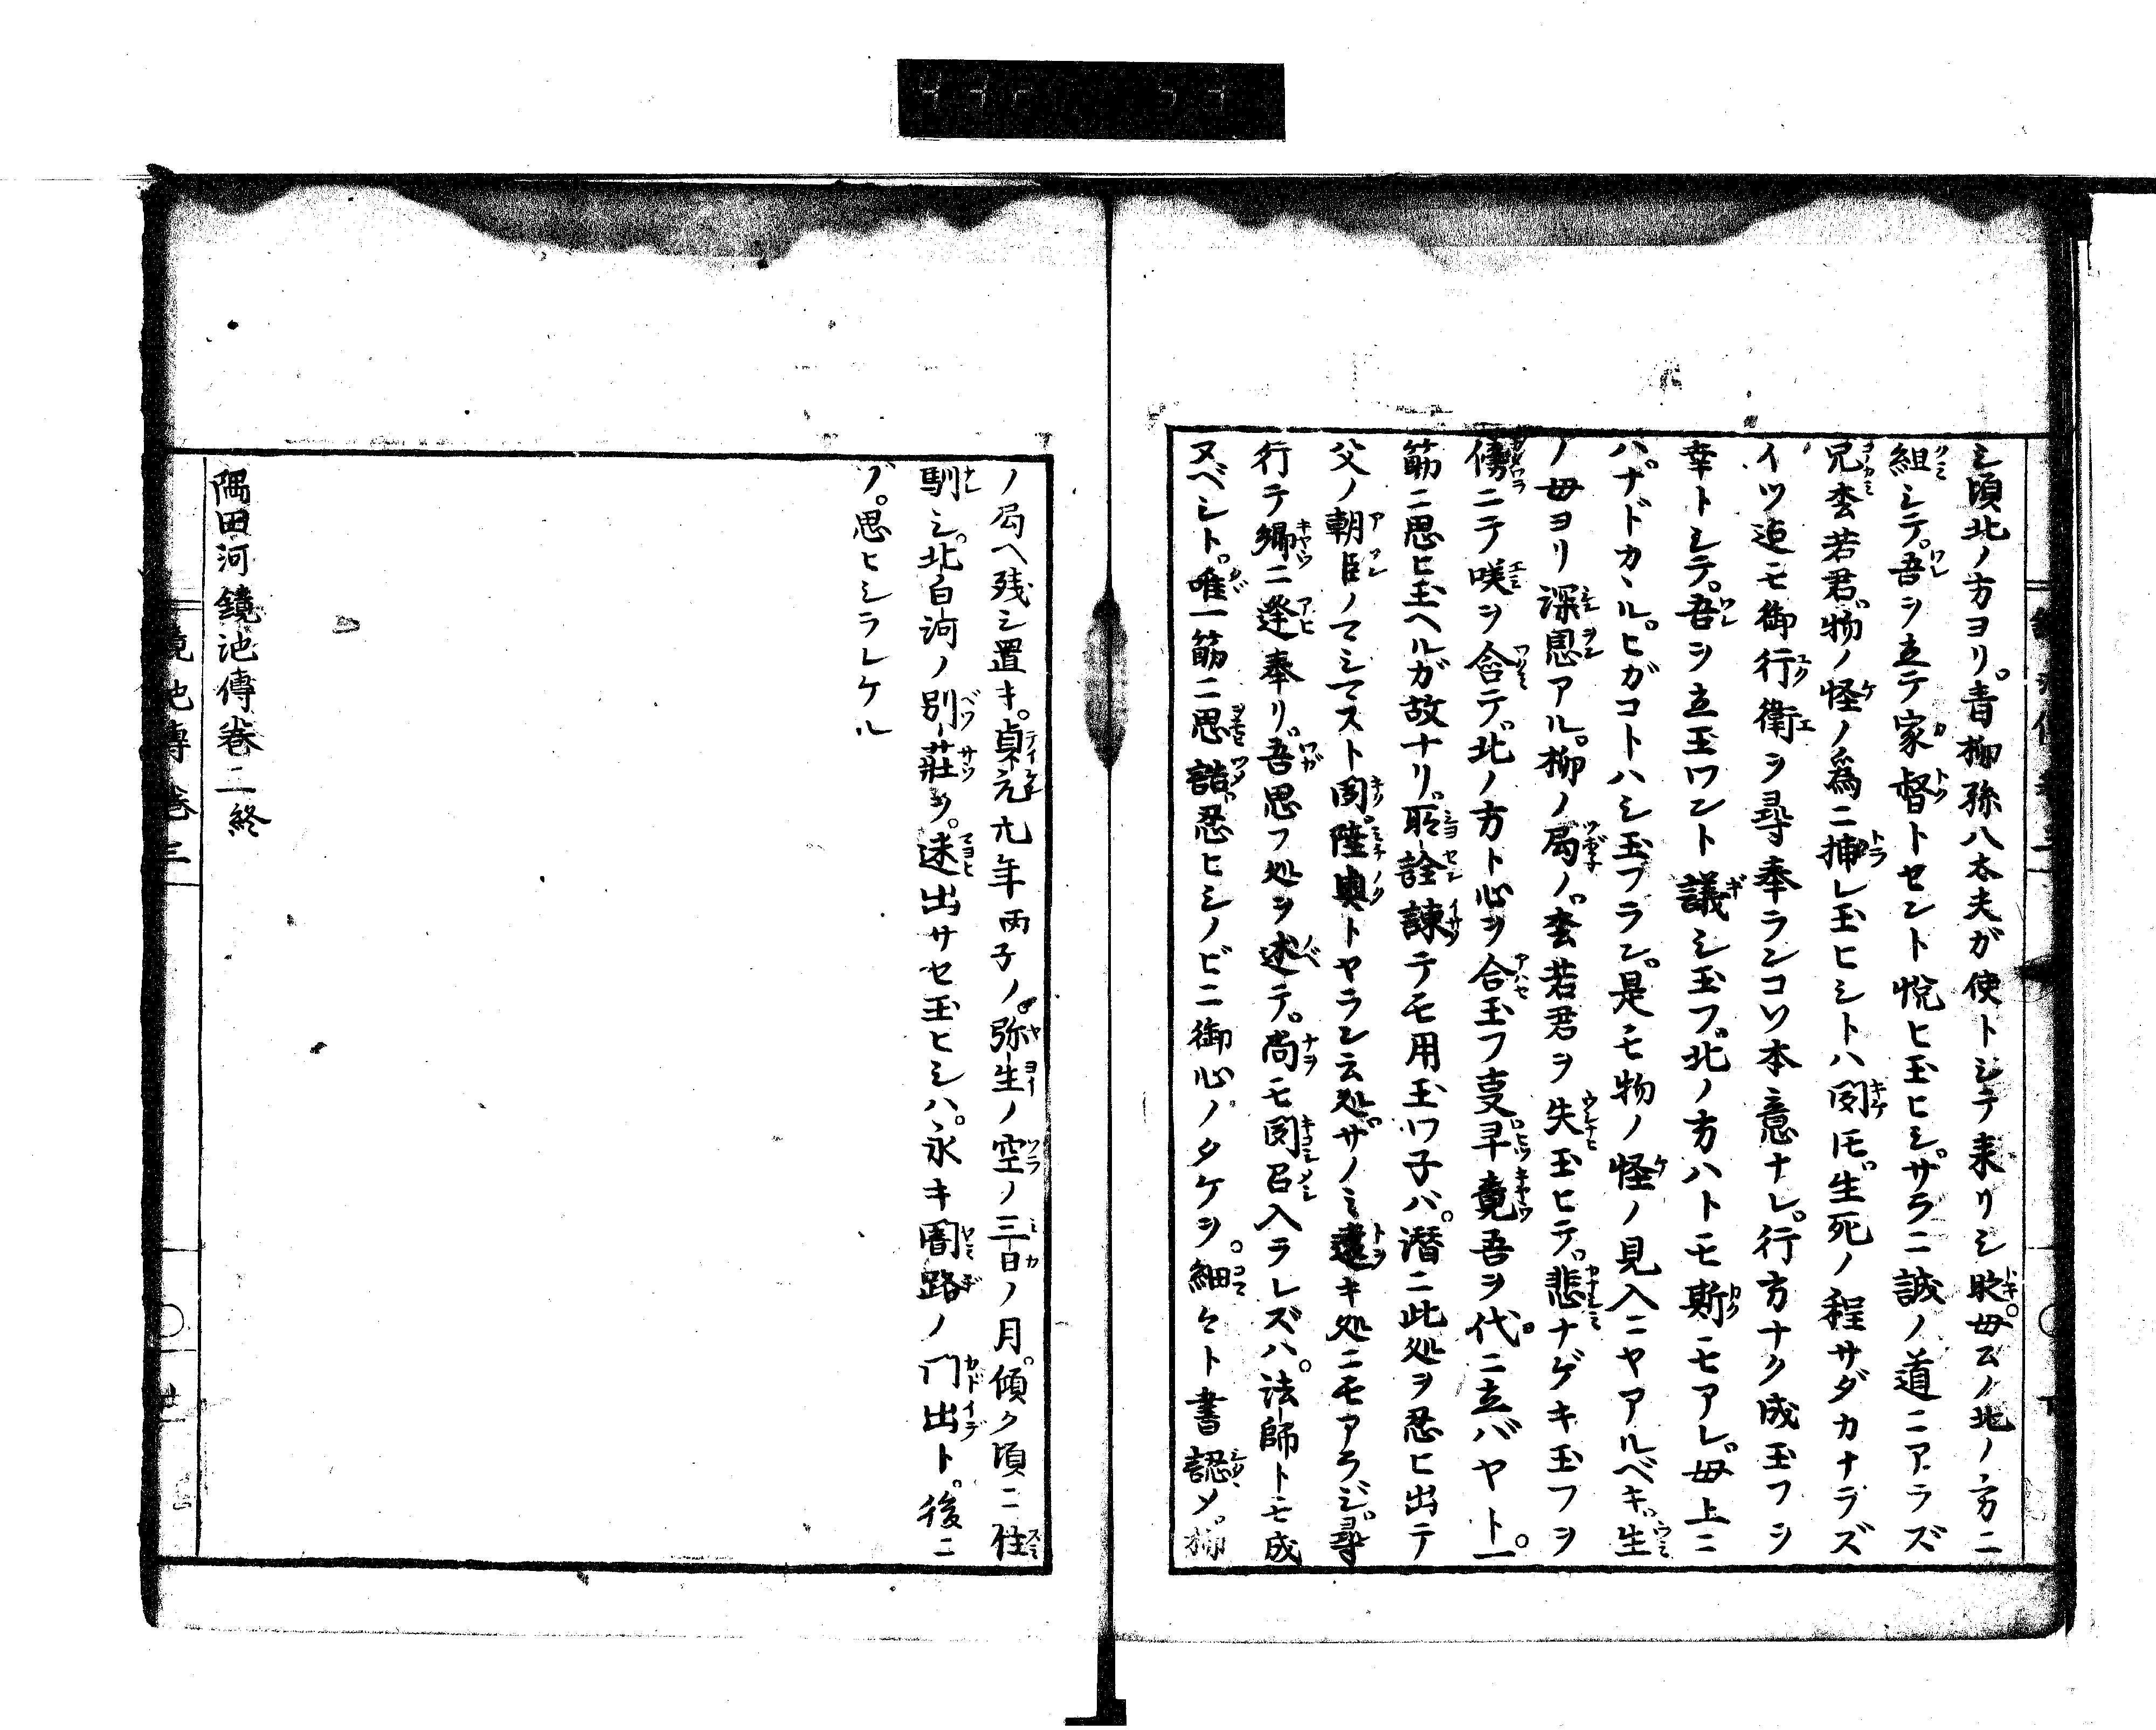 シ頃北ノ方ヨリ。青柳孫八太夫ガ使トシテ来リシ時。母公ノ北ノ方ニ
組シテ。吾ヲ立テ家督トセント悦ヒ玉ヒシ。サラニ誠ノ道ニアラズ
兄柰若君。物ノ怪ノ為ニ捕レ玉ヒシトハ聞𪜈。生死ノ程サダカナラズ
イツ迠モ御行衛ヲ尋奉ランコソ本意ナレ。行方ナク成玉フヲ
幸トシテ。吾ヲ立玉ワント議シ玉フ。北ノ方ハトモ斯モアレ。母上ニ
ハ。ナドカヽル。ヒガコトハシ玉フラン。是モ物ノ怪ノ見入ニヤアルベキ。生
ノ母ヨリ深恩アル。柳ノ局ノ。柰若君ヲ失玉ヒテ。悲ナゲキ玉フヲ
傍ニテ咲ヲ含テ。北ノ方ト心ヲ合玉フ叓。畢竟吾ヲ代ニ立バヤト。一
筋ニ思ヒ玉ヘルガ故ナリ。所詮諌テモ用玉ワ子バ。潜ニ此処ヲ忍ヒ出テ
父ノ朝臣ノマシマスト聞。陸奥トヤラン云処。サノミ遠キ処ニモアラジ。尋
行テ郷ニ逢奉リ。吾思フ処ヲ述テ。尚モ聞召入ラレズハ。法師トモ成
ヌベシト。唯一筋ニ思詰。忍ヒシノビニ御心ノタケヲ。細々ト書認メ。柳
ノ局ヘ残シ置キ。貞元元年丙子ノ。弥生ノ空ノ三日ノ月。傾ク頃ニ住
馴シ。北白河ノ別荘ヲ。迷出サセ玉ヒシハ。永キ闇路ノ門出ト。後ニ
ゾ。思ヒシラレケル
隅田河鏡池傳巻二終
鏡池傳巻三